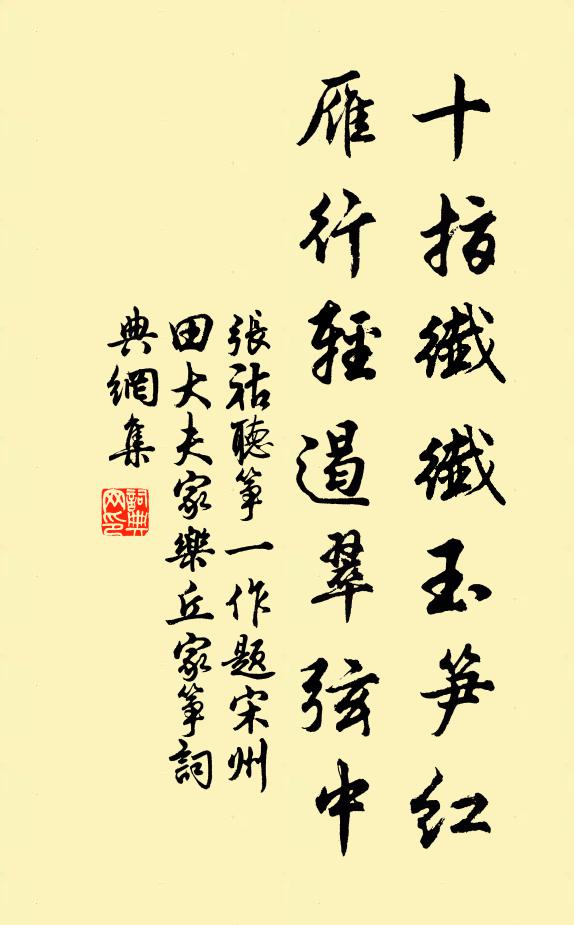 十指纖纖玉笋紅
雁行輕遏翠弦中
張祜聽筝一作題宋州
田大夫家樂丘家筝詞
典網集
詞典
网印